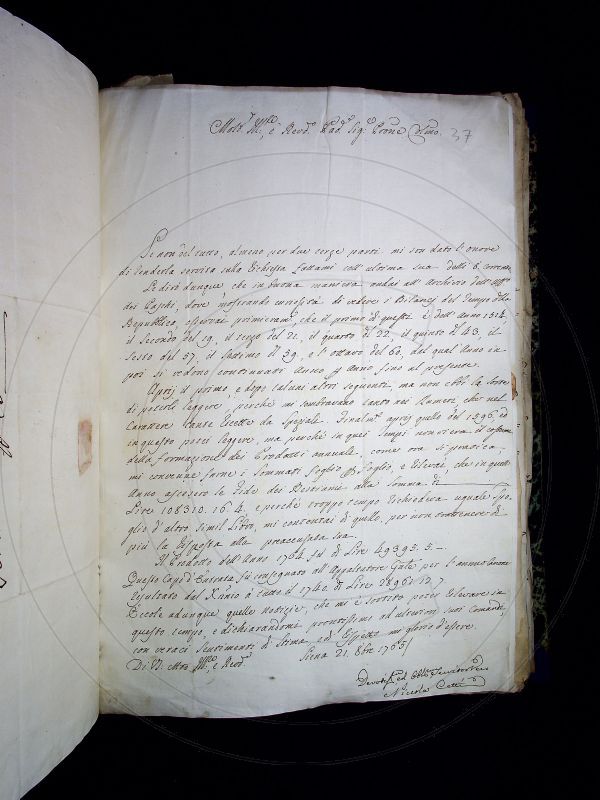 Molto Ill.re e Rev.do Pad.e Sig.e Prone Col.mo 37
Se non del tutto, almeno per due terze parti mi son dato l'onore
di renderla servita sulla Richiesta fattami coll' ultima sua delli 6. corrente
Le dirò dunque, che in buona maniera andai all' Archivio dell'
dei Paschi, dove mostrando curiosità di vedere i Bilanci del Tempo della
Repubblica, osservai primieramente, che il primo di questi è dell' Anno 1514,
il Secondo del 19, il terzo del 21, il quarto di 22, il quinto di 43, il
Sesto del 57, il settimo di 59, e l' ottavo del 60, dal qual Anno in
poi si vedono continuati Anno per Anno fino al presente.
Aprij il primo, e dopo taluni altri seguenti, ma non ebbi la sorte
di poterli leggere, perchè mi sembravano tanto nei Numeri, che nel
Carattere tante Ricette da Speziale. Finalmente aprij quello del 1596. ed
in questo potei leggere, ma perchè in quei Tempi non vi era il costume
della formazione dei Prodotti annuale, come ora si pratica,
mi convenne farne i Sommatti foglio per foglio, e rilevai, che in quell'
Anno ascesero le Fide dei Bestiami alla somma di
Lire 108310. 16. 4. e perchè troppo tempo richiedeva uguale spo-
glio d'altro simil Libro, mi contentai di quello, per non trattenere di
più la Risposta alla preaccennata sua.
Il Prodotto dell' Anno 1764 fu di Lire 49395. 5. —
Questo Capo d' Entrata fu consegnato all' Appaltatore Gale per l' annuo Canone
resultato dal X.nio a tutto il 1740. di Lire 28961. 12. 7
Eccole adunque quelle notizie, che mi è sortito poter rilevare in
questo tempo, e dichiarandomi prontissimo ad ulteriori suoi comandi,
con veraci Sentimenti di Stima, ed Ossequio mi glorio d' essere.
Di V. Mto Ill.re e Rev.da
Siena 21. 8bre 1765/
Devotis.o ed Obb.mo Servidor Vero
Niccolò